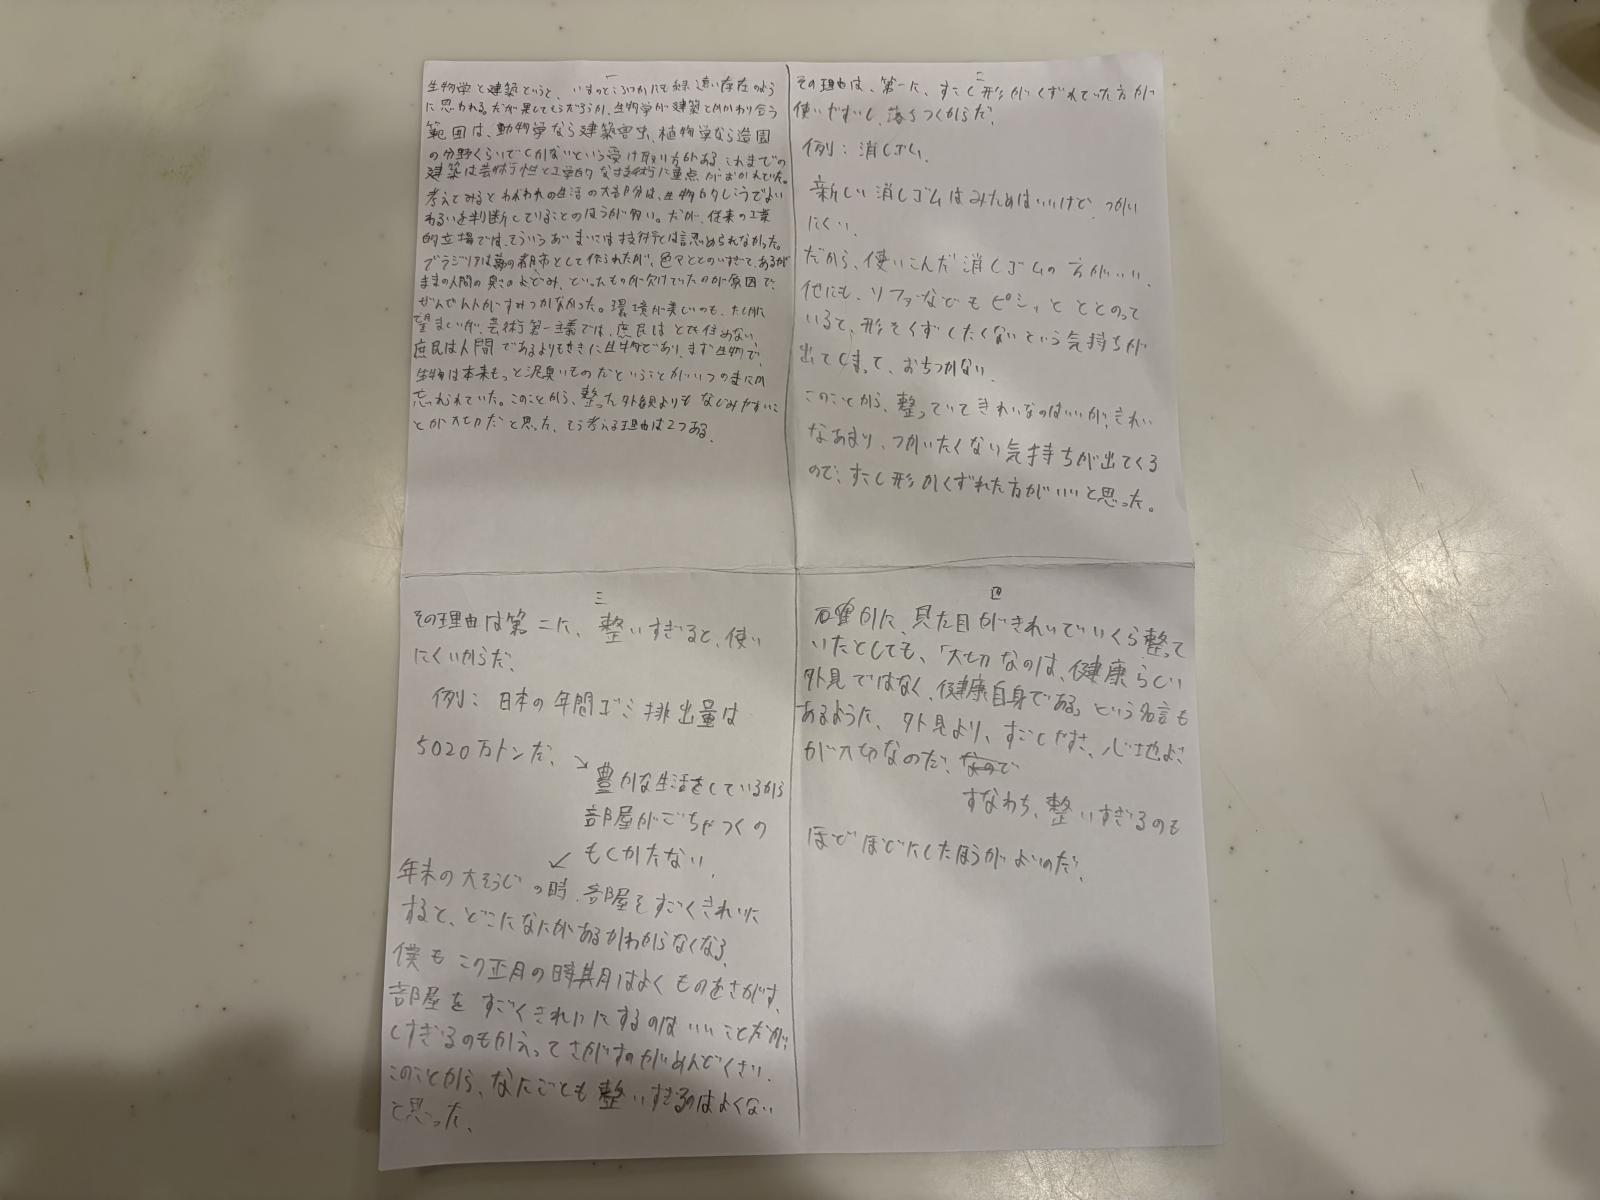 一
生物学と建築というと、いまのところいかにも縁遠い存在のよう
に思われる。だが果してそうだろうか、生物学が建築とかかわり合う
範囲は、動物学なら建築害虫、植物学なら造園
の分野くらいでしかないという受け取り方がある。これまでの
建築は芸術性と工学的な技術に重点がおかれていた。
考えてみるとわれわれの生活の大部分は、生物的なしょうでよい
わるいを判断していることのほうが多い。だが、従来の工業
的立場では、そういうあいまいさは技術とは認められなかった。
ブラジリアは夢の都市として作られたが、色々ととのいすぎて、あるが
ままの人間の臭さのよどみ、といったものが欠けていたのが原因で、
ぜんぜん人がすみつかなかった。環境が美しいのも、たしかに
望ましいが、芸術第一主義では、庶民はとても住めない。
庶民は人間であるよりもさきに生物であり、まず生物で、
生物は本来もっと泥臭いものだということがいつのまにか
忘れられていた。このことから、整った外観よりもなじみやすいこ
とが大切だと思った。そう考える理由は2つある。
二
その理由は、第一に、すこし形がくずれていた方が
使いやすいし、落ちつくからだ。
例：消しゴム。
新しい消しゴムはみためはいいけど、つかい
にくい。
だから、使いこんだ消しゴムの方がいい。
他にも、ソファなどもピシッとととのって
いると、形をくずしたくないという気持ちが
出てしまって、おちつかない。
このことから、整っていてきれいなのはいいが、きれい
なあまり、つかいたくない気持ちが出てくる
ので、すこし形がくずれた方がいいと思った。
三
その理由は第二に、整いすぎると、使い
にくいからだ。
例：日本の年間ゴミ排出量は
5020万トンだ。
→豊かな生活をしているから
部屋がごちゃつくの
もしかたない。
年末の大そうじの時、部屋をすごくきれいに
すると、どこになにがあるかわからなくなる。
僕もこの正月の時期はよくものをさがす。
部屋をすごくきれいにするのはいいことだが、
しすぎるのもかえってさがすのがめんどくさい。
このことから、なにごとも整いすぎるのはよくない
と思った。
四
確かに、見た目がきれいでいくら整って
いたとしても、「大切なのは、健康らしい
外見ではなく、健康自身である」という名言も
あるように、外見より、すごしやすさ、心地よさ
が大切なのだ。なので
すなわち、整いすぎるのも
ほどほどにしたほうがよいのだ。